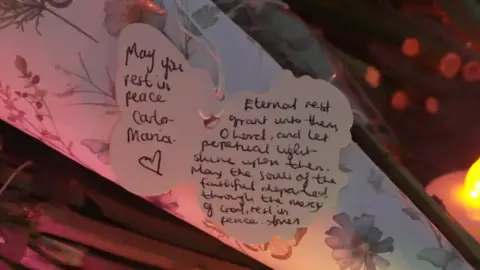 May you
rest in
peace
Carla-
Maria.
♡
Eternal rest
grant unto them
O Lord, and let
perpetual light
shine upon them.
May the souls of the
faithful departed
through the mercy
of God, rest in
peace. Amen